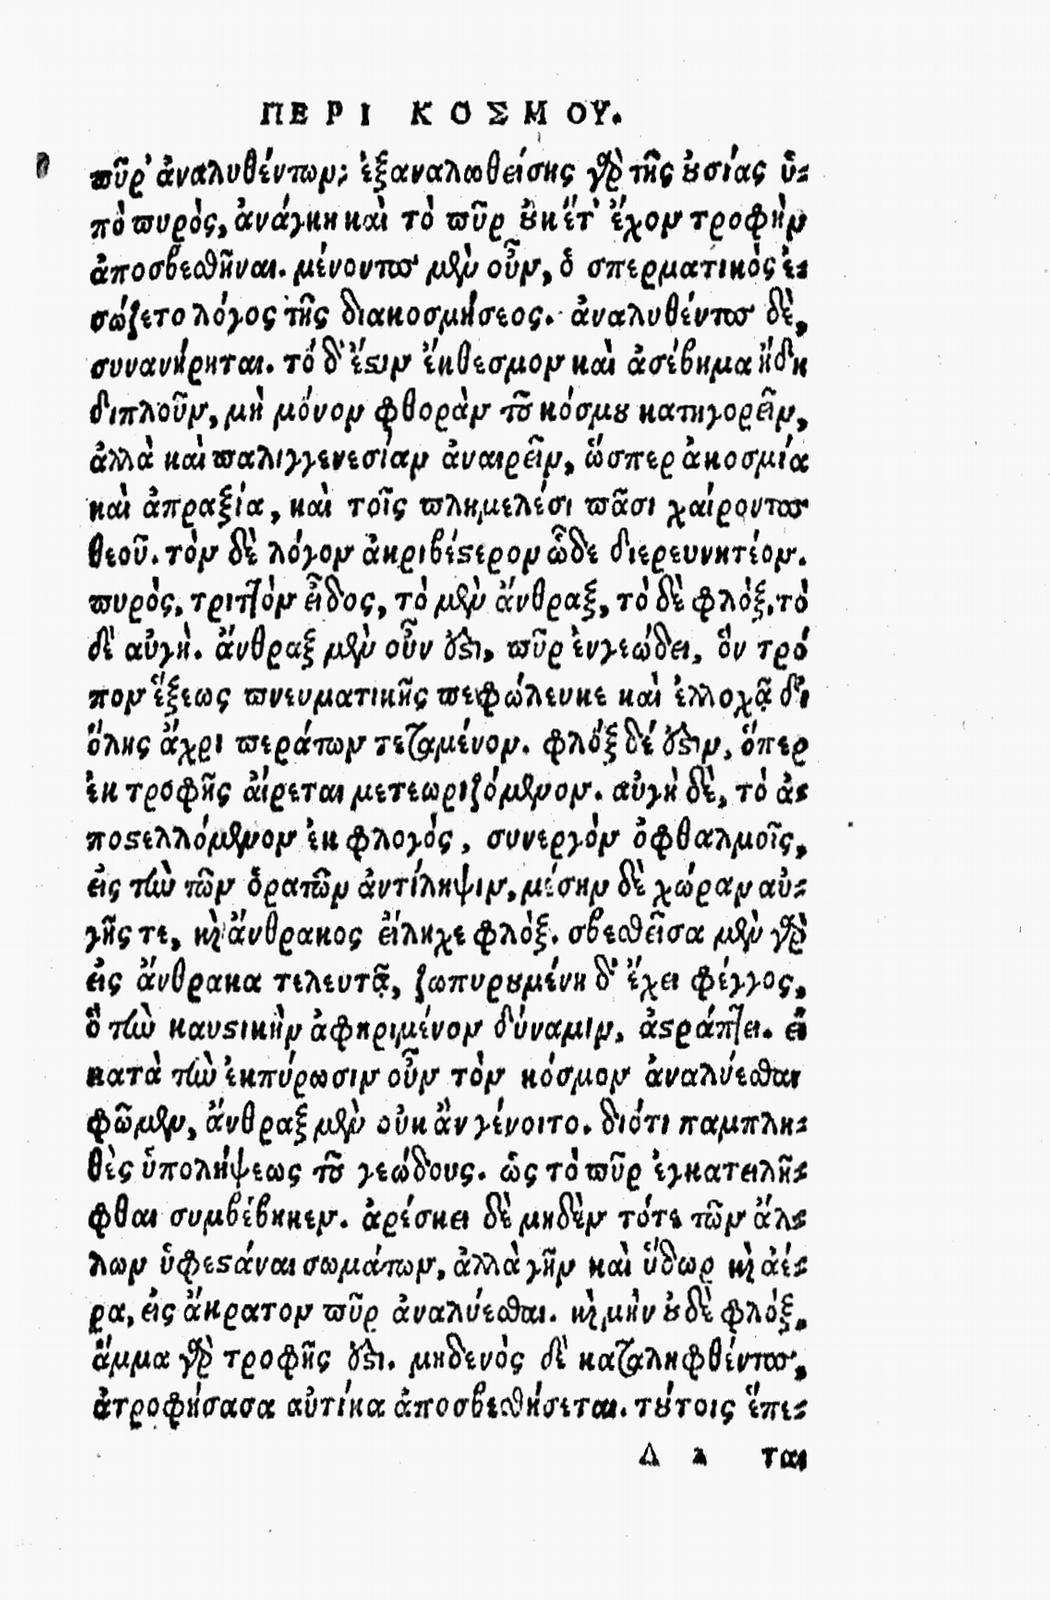 ΠΕΡΙ ΚΟΣΜΟΥ.
πῦρ ἀναλυθέντων; ἐξαναλωθείσης γὰρ τῆς ȣσίας ὑ-
πὸ πυρὸς, ἀνάγκη καὶ τὸ πῦρ ȣκέτ' ἔχον τροφὴν
ἀποσβεσθῆναι. μένοντος μὲν οὖν, ὁ σπερματικὸς ἐ-
σώζετο λόγος τῆς διακοσμήσεος. ἀναλυθέντος δὲ,
συνανῄρηται. τὸ δ' ἔστιν ἔκθεσμον καὶ ἀσέβημα ἤδη
διπλοῦν, μὴ μόνον φθορὰν τοῦ κόσμȣ κατηγορεῖν,
ἀλλὰ καὶ παλιγγενεσίαν ἀναιρεῖν, ὥσπερ ἀκοσμία
καὶ ἀπραξία, καὶ τοῖς πλημελέσι πᾶσι χαίροντος
θεοῦ. τὸν δὲ λόγον ἀκριβέστερον ὧδε διερευνητέον.
πυρὸς, τριττὸν εἶδος, τὸ μὲν ἄνθραξ, τὸ δὲ φλὸξ, τὸ
δὲ αὐγή. ἄνθραξ μὲν οὖν ὅστι, πῦρ ἐνγεώδει, ὃν τρό
πον ἕξεως πνευματικῆς πεφώλευκε καὶ ἐλλοχᾷ δι'
ὅλης ἄχρι περάτων τεταμένον. φλόξ δέ ὅστιν, ὅπερ
ἐκ τροφῆς αἴρεται μετεωριζόμενον. αὐγὴ δὲ, τὸ ἀ-
ποστελλόμενον ἐκ φλογός, συνεργὸν ὀφθαλμοῖς,
εἰς τὴν τῶν ὁρατῶν ἀντίληψιν, μέσην δὲ χώραν αὐ-
γῆς τε, καὶ ἄνθρακος εἴληχε φλόξ. σβεσθεῖσα μὲν γὰρ
εἰς ἄνθρακα τελευτᾷ, ζωπυρȣμένη δ' ἔχει φέγγος,
ὃ τὴν καυστικὴν ἀφηριμένον δύναμιν, ἀστράπτει. εἰ
κατὰ τὴν ἐκπύρωσιν οὖν τὸν κόσμον ἀναλύεσθαι
φῶμεν, ἄνθραξ μὲν οὐκ ἂν γένοιτο. διότι παμπλη-
θὲς ὑπολήψεως τοῦ γεώδους. ὡς τὸ πῦρ ἐγκατειλῆ-
φθαι συμβέβηκεν. ἀρέσκει δὲ μηδὲν τότε τῶν ἄλ-
λων ὑφεστάναι σωμάτων, ἀλλὰ γῆν καὶ ὕδωρ καὶ ἀέ-
ρα, εἰς ἄκρατον πῦρ ἀναλύεσθαι. καὶ μὴν ȣδὲ φλόξ.
ἅμμα γὰρ τροφῆς ὅστι. μηδενὸς δὲ καταληφθέντος,
ἀτροφήσασα αὐτίκα ἀποσβεσθήσεται. τȣτοις ἕπε-
Δ 2 ται